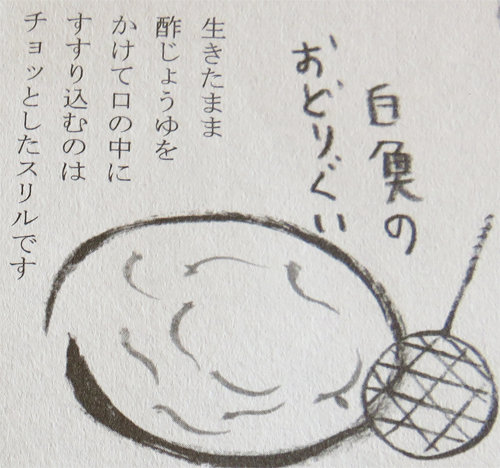 白魚の
おどりぐい
生きたまま
酢じょうゆを
かけて口の中に
すすり込むのは
チョッとしたスリルです